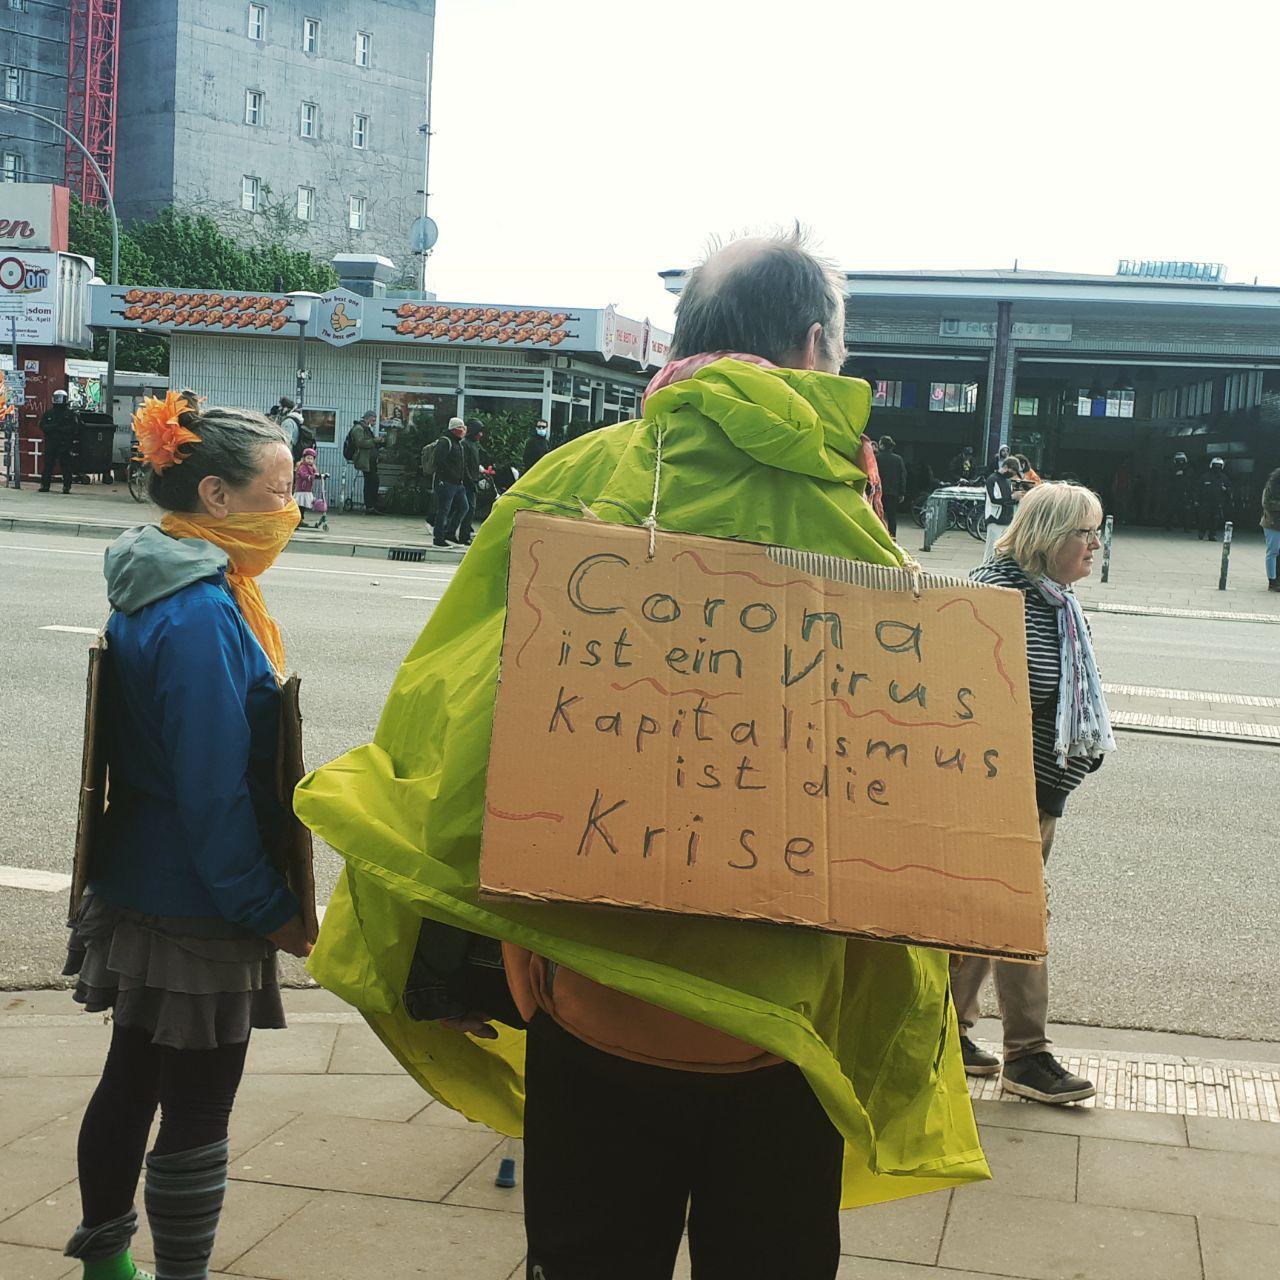 Corona
ist ein Virus
Kapitalismus
ist die
Krise
The best one
The best one
THE BEST ONE
en
om
U Feldstraße